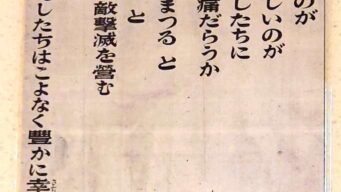 のが
しいのが
したちに
痛だらうか
まつる と
と
敵撃滅を營む
したちはこよなく豊かに幸